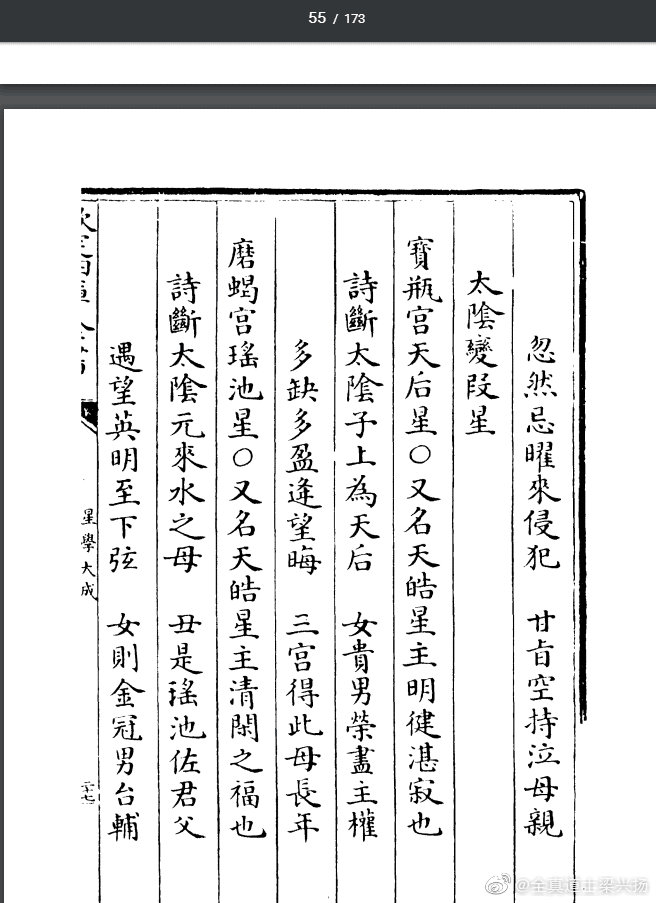 55 / 173
忽然忌曜來侵犯　甘旨空持泣母親
太陰變叚星
寳瓶宫天后星○又名天皓星主明健湛寂也
詩斷太陰子上為天后　女貴男榮盡主權
多缺多盈逢望晦　三宫得此母長年
磨蝎宫瑤池星○又名天皓星主清閑之福也
詩斷太陰元來水之母　丑是瑤池佐君父
遇望英明至下弦　女則金冠男台輔
星學大成
二十七
@全真道士梁兴扬